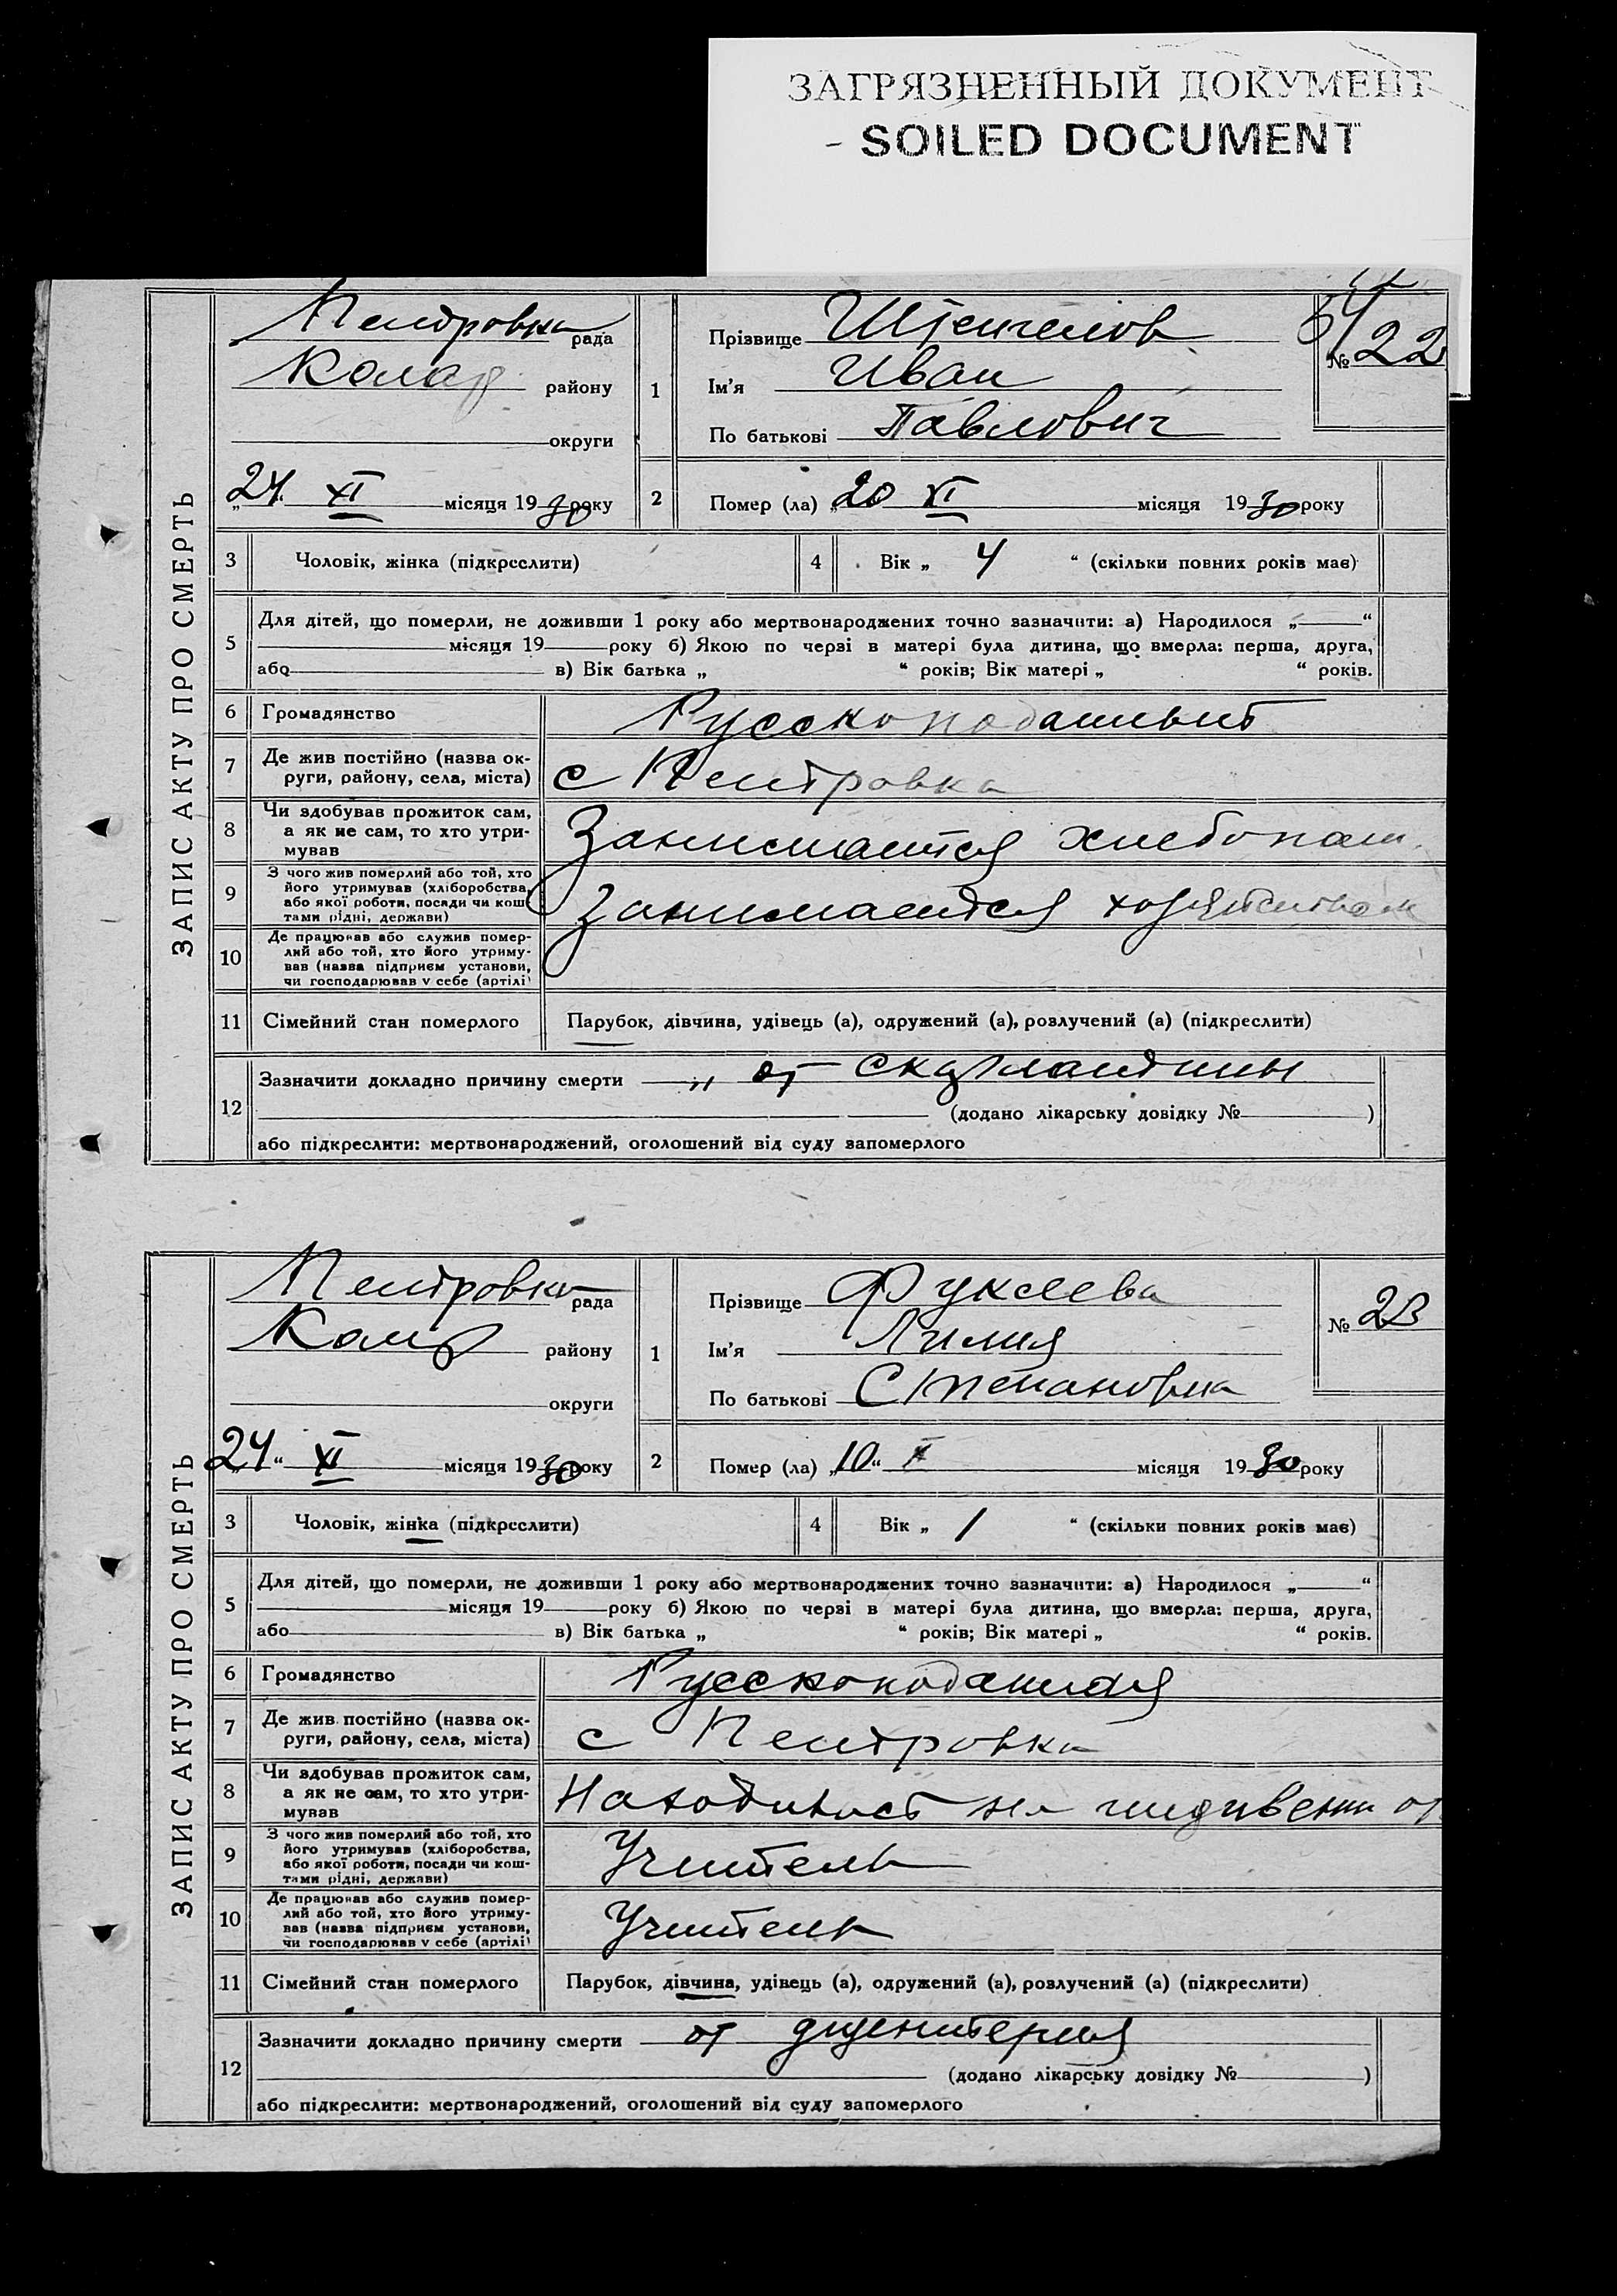 ЗАГРЯЗНЕННЫЙ ДОКУМЕНТ
- SOILED DOCUMENT
ЗАПИС АКТУ ПРО СМЕРТЬ
Петровка рада
району
округи
„24“ XI місяця 1930 року
1
Прізвище
Ім’я Иван
По батькові Павлович
№ 22
2 Помер (ла) „20 XI місяця 1930 року
3 Чоловік, жінка (підкреслити)
4 Вік „ 4 “ (скільки повних років має)
5 Для дітей, що померли, не доживши 1 року або мертвонароджених точно зазначити: а) Народилося „ “
місяця 19 року б) Якою по черзі в матері була дитина, що вмерла: перша, друга,
або в) Вік батька „ “ років; Вік матері „ “ років.
6 Громадянство
7 Де жив постійно (назва ок-
руги, району, села, міста)
с Петровка
8 Чи здобував прожиток сам,
а як не сам, то хто утри-
мував
Занимается
9 З чого жив померлий або той, хто
його утримував (хліборобства,
або якої роботи, посади чи кош-
тами рідні, держави)
Занимается
10 Де працював або служив помер-
лий або той, хто його утриму-
вав (назва підприєм установи,
чи господарював у себе (артілі)
11 Сімейний стан померлого Парубок, дівчина, удівець (а), одружений (а), розлучений (а) (підкреслити)
12 Зазначити докладно причину смерти „ от скарлатины
(додано лікарську довідку № )
або підкреслити: мертвонароджений, оголошений від суду запомерлого
ЗАПИС АКТУ ПРО СМЕРТЬ
Петровка рада
району
округи
„24“ XI місяця 1930 року
1
Прізвище Фуксеева
Ім’я Лилия
По батькові Степановна
№ 23
2 Помер (ла) „10“ X місяця 1930 року
3 Чоловік, жінка (підкреслити)
4 Вік „ 1 “ (скільки повних років має)
5 Для дітей, що померли, не доживши 1 року або мертвонароджених точно зазначити: а) Народилося „ “
місяця 19 року б) Якою по черзі в матері була дитина, що вмерла: перша, друга,
або в) Вік батька „ “ років; Вік матері „ “ років.
6 Громадянство
7 Де жив постійно (назва ок-
руги, району, села, міста)
с Петровка
8 Чи здобував прожиток сам,
а як не сам, то хто утри-
мував
Находилась на
9 З чого жив померлий або той, хто
його утримував (хліборобства,
або якої роботи, посади чи кош-
тами рідні, держави)
Учитель
10 Де працював або служив помер-
лий або той, хто його утриму-
вав (назва підприєм установи,
чи господарював у себе (артілі)
Учитель
11 Сімейний стан померлого Парубок, дівчина, удівець (а), одружений (а), розлучений (а) (підкреслити)
12 Зазначити докладно причину смерти от
(додано лікарську довідку № )
або підкреслити: мертвонароджений, оголошений від суду запомерлого